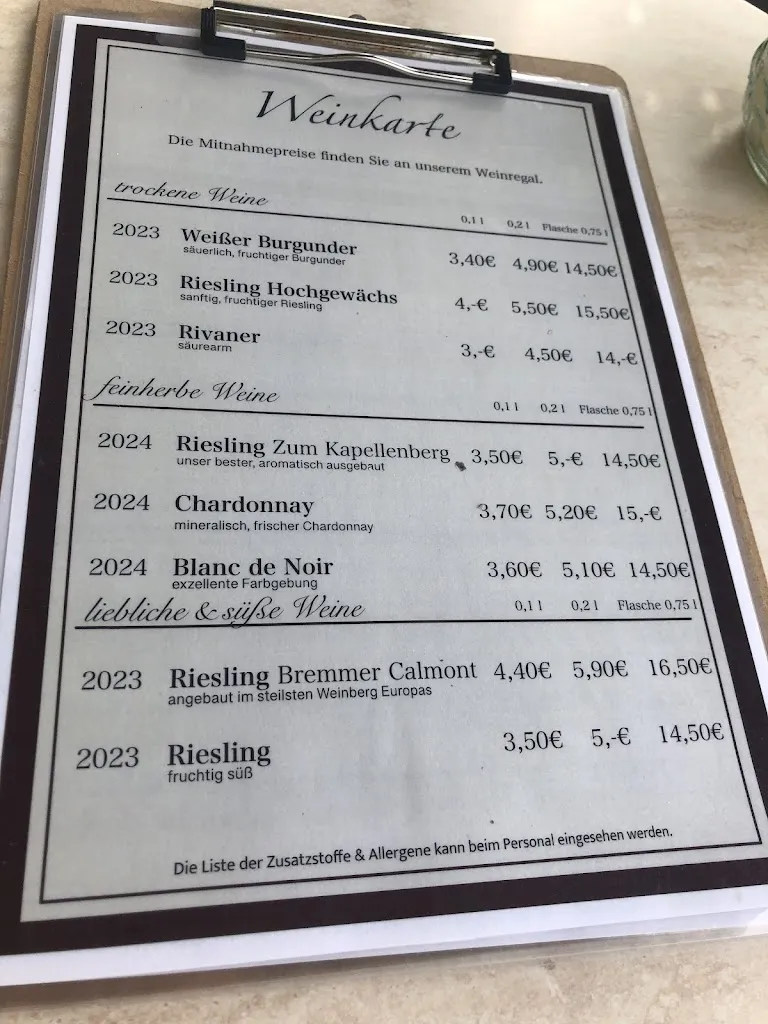 Weinkarte
Die Mitnahmepreise finden Sie an unserem Weinregal.
trockene Weine 0,1 l 0,2 l Flasche 0,75 l
2023 Weißer Burgunder 3,40€ 4,90€ 14,50€
säuerlich, fruchtiger Burgunder
2023 Riesling Hochgewächs 4,-€ 5,50€ 15,50€
sanftig, fruchtiger Riesling
2023 Rivaner 3,-€ 4,50€ 14,-€
säurearm
feinherbe Weine 0,1 l 0,2 l Flasche 0,75 l
2024 Riesling Zum Kapellenberg 3,50€ 5,-€ 14,50€
unser bester, aromatisch ausgebaut
2024 Chardonnay 3,70€ 5,20€ 15,-€
mineralisch, frischer Chardonnay
2024 Blanc de Noir 3,60€ 5,10€ 14,50€
exzellente Farbgebung
liebliche & süße Weine 0,1 l 0,2 l Flasche 0,75 l
2023 Riesling Bremmer Calmont 4,40€ 5,90€ 16,50€
angebaut im steilsten Weinberg Europas
2023 Riesling 3,50€ 5,-€ 14,50€
fruchtig süß
Die Liste der Zusatzstoffe & Allergene kann beim Personal eingesehen werden.